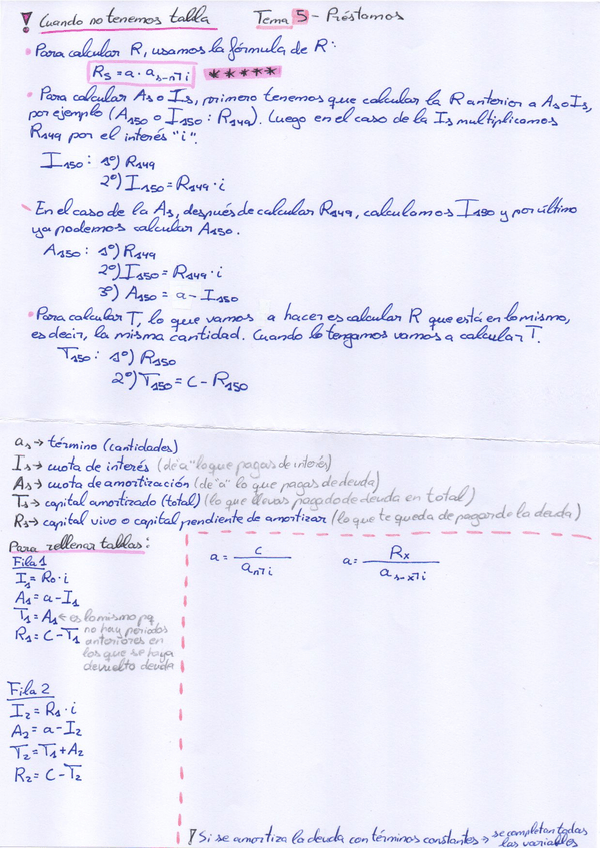 ! Cuando no tenemos tabla Tema 5 - Préstamos
• Para calcular R, usamos la fórmula de R:
Rs = a · a s-n┐i *****
• Para calcular As o Is, primero tenemos que calcular la R anterior a As o Is,
por ejemplo (A150 o I150 : R149). Luego en el caso de la Is multiplicamos
R149 por el interés "i".
I150 : 1º) R149
2º) I150 = R149 · i
- En el caso de la As, después de calcular R149, calculamos I150 y por último
ya podemos calcular A150.
A150 : 1º) R149
2º) I150 = R149 · i
3º) A150 = a - I150
• Para calcular T, lo que vamos a hacer es calcular R que está en lo mismo,
es decir, la misma cantidad. Cuando lo tengamos vamos a calcular T.
T150 : 1º) R150
2º) T150 = C - R150
as → término (cantidades)
Is → cuota de interés (de "a" lo que pagas de interés)
As → cuota de amortización (de "a" lo que pagas de deuda)
Ts → capital amortizado (total) (lo que llevas pagado de deuda en total)
Rs → capital vivo o capital pendiente de amortizar (lo que te queda de pagar de la deuda)
Para rellenar tablas:
Fila 1
I1 = R0 · i
A1 = a - I1
T1 = A1 ← es lo mismo pq
no hay periodos
anteriores en
los que se haya
devuelto deuda
R1 = C - T1
Fila 2
I2 = R1 · i
A2 = a - I2
T2 = T1 + A2
R2 = C - T2
a = C / a n┐i
a = Rx / a s-x┐i
! Si se amortiza la deuda con términos constantes → se completan todas
las variables